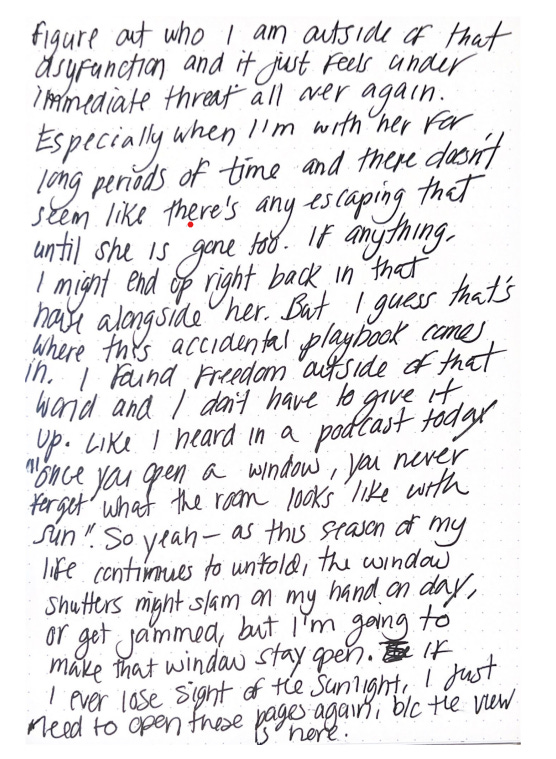 figure out who I am outside of that
dysfunction and it just feels under
immediate threat all over again.
Especially when I'm with her for
long periods of time and there doesn't
seem like there's any escaping that
until she is gone too. If anything,
I might end up right back in that
house alongside her. But I guess that's
where this accidental playbook comes
in. I found freedom outside of that
world and I don't have to give it
up. Like I heard in a podcast today
"once you open a window, you never
forget what the room looks like with
sun". So yeah - as this season of my
life continues to unfold, the window
shutters might slam on my hand on day,
or get jammed, but I'm going to
make that window stay open. If
I ever lose sight of the sunlight, I just
need to open these pages again, b/c the view
is here.